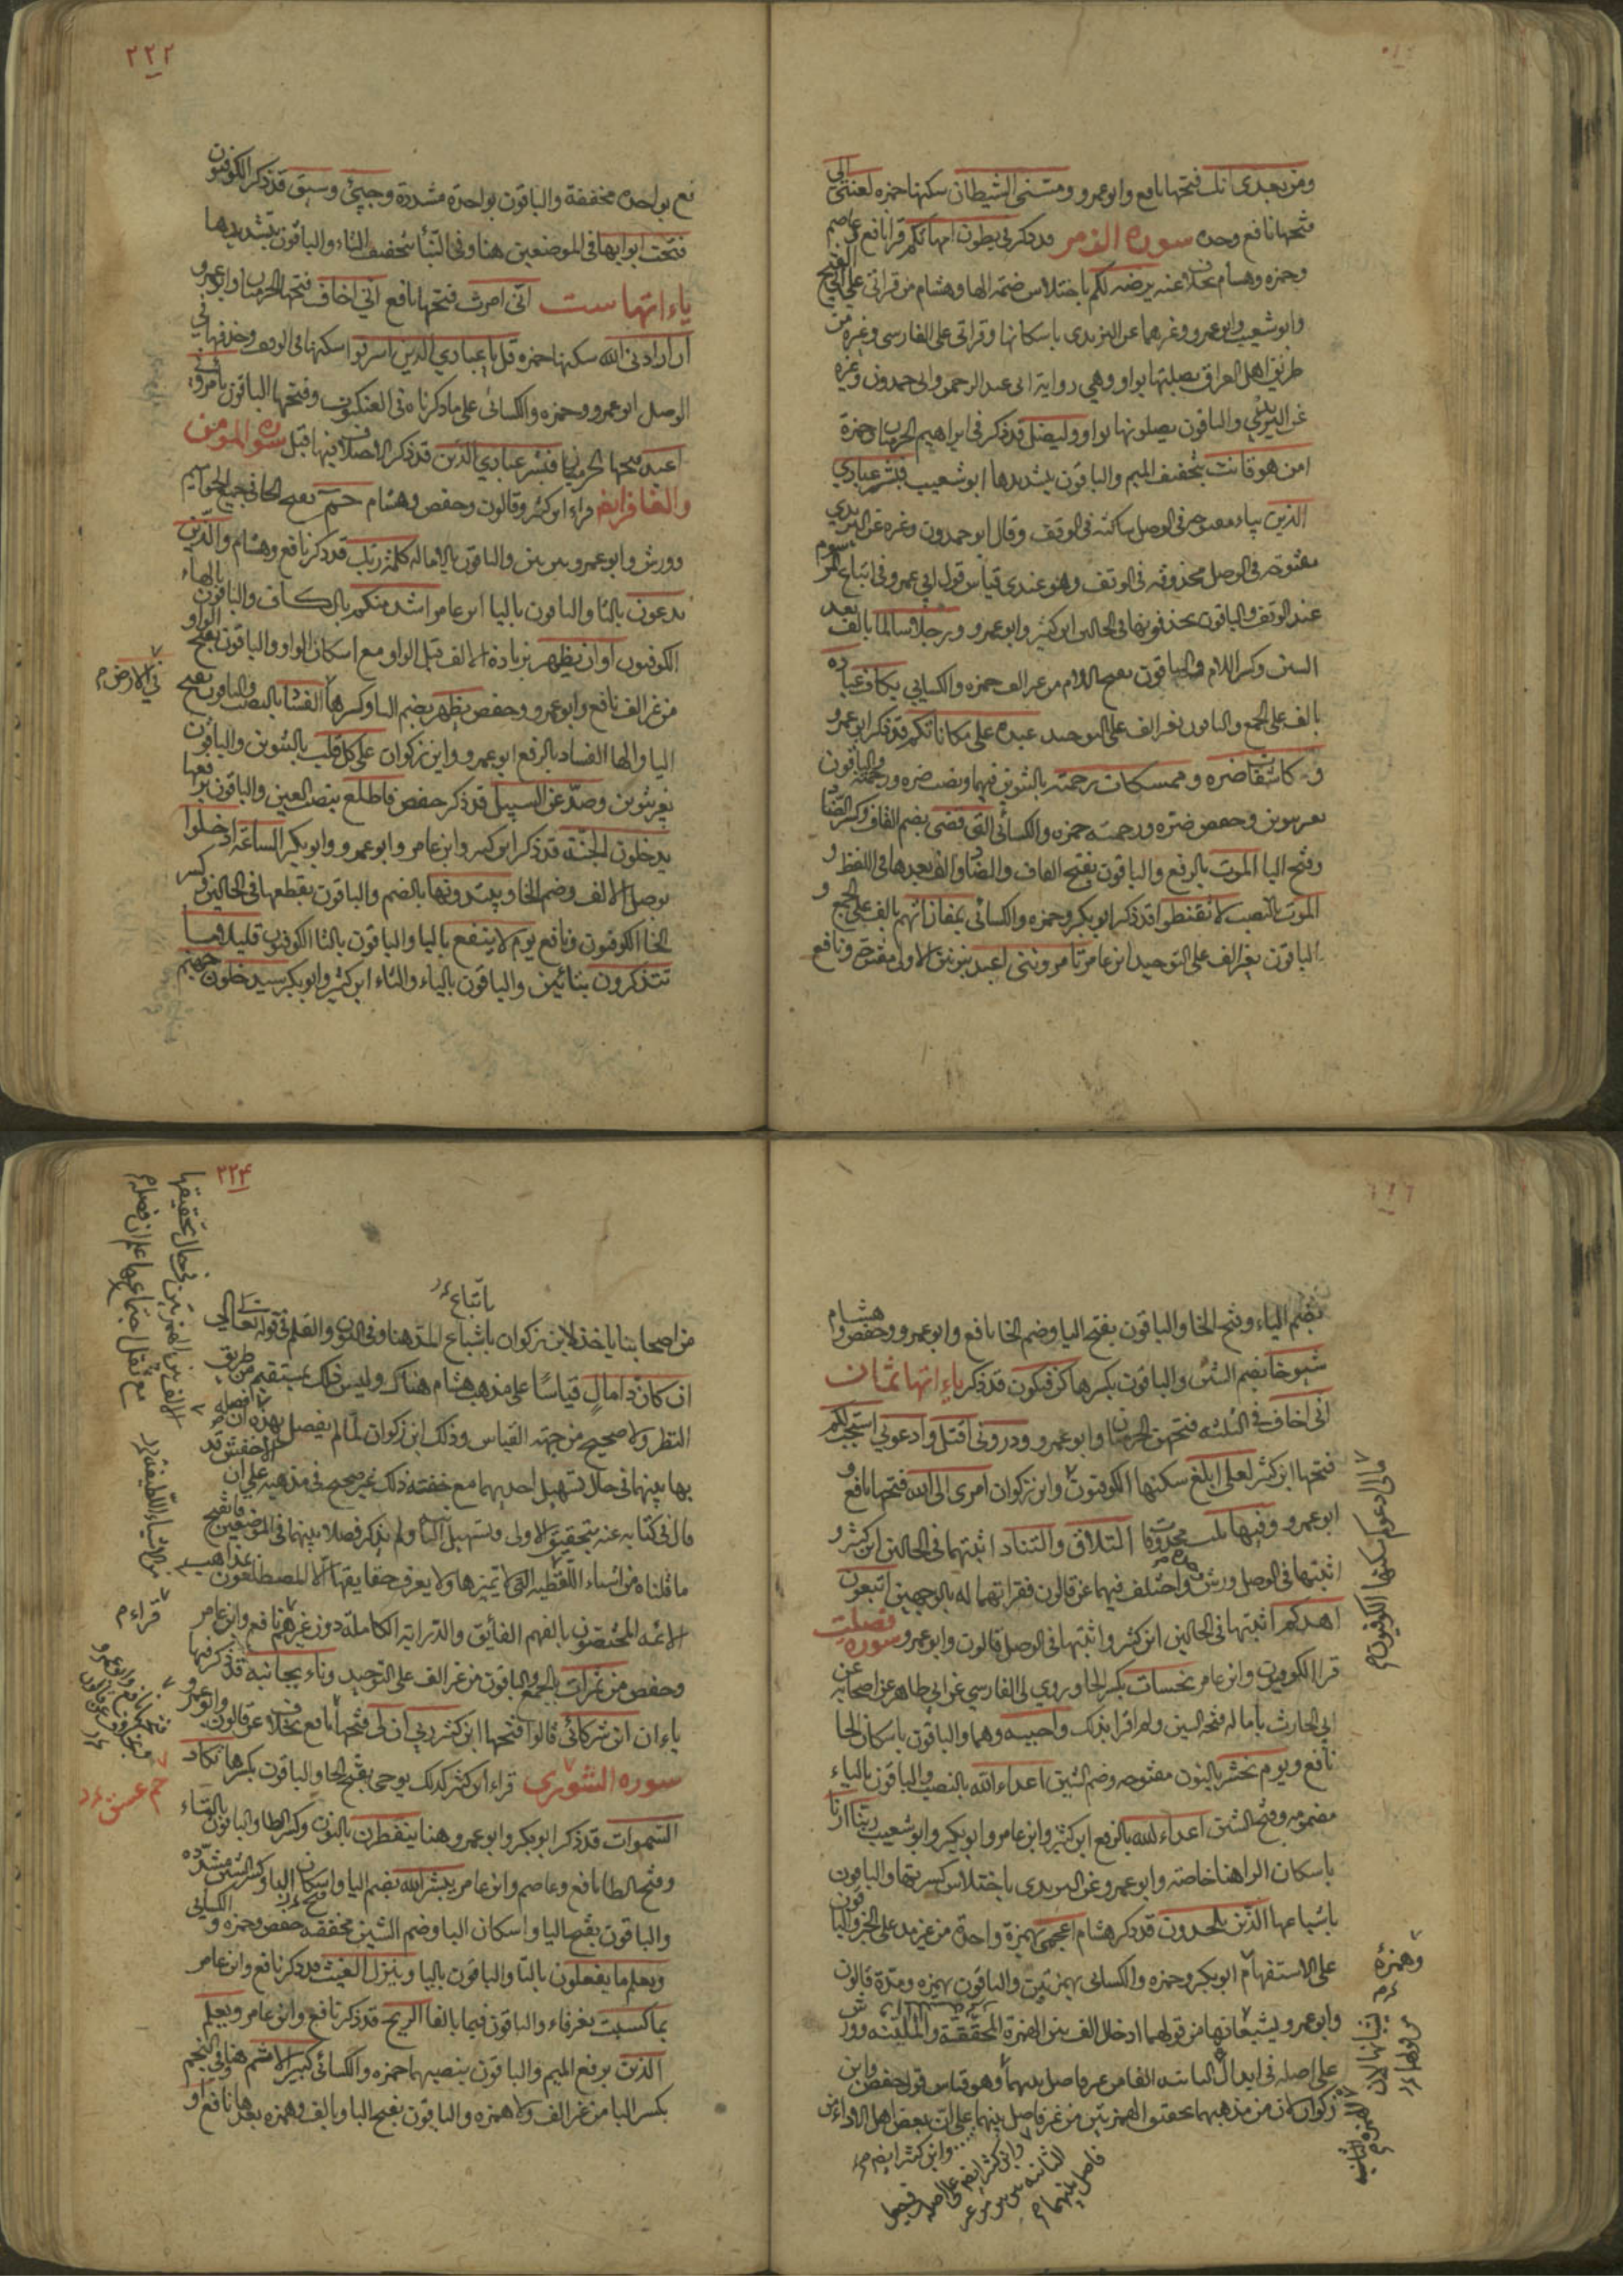 ومن بعدى انك فتحها نافع وابو عمرو ومسنى الشيطان سكنها حمزه لعنتى الى
فتحها نافع وحده سوره الزمر قد ذكر فى بطون امهاتكم قرا نافع وعاصم
وحمزه وهشام بخلاف عنه يرضه لكم باختلاس ضمة الها وهشام من قراتى على ابى الفتح
وابو شعيب وابو عمرو وغيرهما عن اليزيدى باسكانها وقراتى على الفارسى وغيره من
طريق اهل العراق بصلتها بواو وهى رواية ابى عبد الرحمن وابى حمدون وغيره
عن اليزيدى والباقون يصلونها بواو وليضل قد ذكر فى ابراهيم الحرميان وحمزة
امن هو قانت بتخفيف الميم والباقون بتشديدها ابو شعيب فبشر عبادى
الذين بياء مفتوحه فى الوصل ساكنه فى الوقف وقال ابو حمدون وغيره عن اليزيدى
مفتوحه فى الوصل محذوفه فى الوقف وهو عندى قياس قول ابى عمرو فى اتباع المرسوم
عند الوقف والباقون يحذفونها فى الحالين ابن كثير وابو عمرو ورجلا سالما بالف بعد
السين وكسر اللام والباقون بفتح اللام من غير الف حمزه والكسايى بكاف عباده
بالف على الجمع والباقون بغير الف على التوحيد عبده على مكاناتكم قد ذكر ابو عمرو
كاشفات ضره وممسكات رحمته بالتنوين فيهما ونصب ضره ورحمته والباقون
بغير تنوين وخفض ضره ورحمته حمزه والكسائى التى قضى بضم القاف وكسر الضاد
وفتح اليا الموت بالرفع والباقون بفتح القاف والضاد والف بعدها فى اللفظ و
الموت بالنصب لا تقنطوا قد ذكر ابو بكر وحمزه والكسائى بمفازاتهم بالف على الجمع و
الباقون بغير الف على التوحيد ابن عامر تامروننى اعبد بنونين الاولى مفتوحة ونافع
٢٢٢
فع بواحده مخففة والباقون بواحدة مشددة وجىئ وسيق قد ذكر الكوفيون
فتحت ابوابها فى الموضعين هنا وفى النبأ بتخفيف التاء والباقون بتشديدها
ياءاتها ست انى امرت فتحها نافع انى اخاف فتحها الحرميان وابو عمرو
ان ارادنى الله سكنها حمزه قل يا عبادي الذين اسرفوا اسكنها فى الوقف وحذفها فى
الوصل ابو عمرو وحمزه والكسائى على ما ذكرناه فى العنكبوت وفتحها الباقون تأمرونى
اعبد فتحها الحرميان فبشر عبادي الذين قد ذكر الاختلاف فيها قبل سورة المؤمن
والغافر ايضا قراء ابن كثير وقالون وحفص وهشام حم بفتح الحا فى جميع الحواميم
وورش وابو عمرو بين بين والباقون بالاماله كلمت ربك قد ذكر نافع وهشام والذين
يدعون بالتا والباقون باليا ابن عامر اشد منكم بالكاف والباقون بالهاء
الكوفيون او ان يظهر بزيادة الالف قبل الواو مع اسكان الواو والباقون بفتح الواو
من غير الف نافع وابو عمرو وحفص يظهر بضم اليا وكسر الها الفساد بالنصب والباقون بفتح
فى الارض م
اليا والها الفساد بالرفع ابو عمرو وابن ذكوان على كل قلب بالتنوين والباقون
بغير تنوين وصد عن السبيل قد ذكر حفص فاطلع بنصب العين والباقون برفعها
يدخلون الجنة قد ذكر ابن كثير وابن عامر وابو عمرو وابو بكر الساعة ادخلوا
بوصل الالف وضم الخا ويبتدونها بالضم والباقون بقطعها فى الحالين وكسر
الخا الكوفيون ونافع يوم لا ينفع باليا والباقون بالتا الكوفيون قليلا ما
تتذكرون بتائين والباقون بالياء والتاء ابن كثير وابو بكر سيدخلون جهنم
بضم الياء وفتح الخا والباقون بفتح اليا وضم الخا نافع وابو عمرو وحفص وهشام
شيوخا بضم الشين والباقون بكسرها كن فيكون قد ذكر ياءاتها ثمان
انى اخاف فى الثلثه فتحهن الحرميان وابو عمرو وذرونى اقتل وادعونى استجب لكم
فتحها ابن كثير لعلى ابلغ سكنها الكوفيون وابن ذكوان امرى الى الله فتحها نافع و
ابو عمرو وفيها ثلث محذوفات التلاق والتناد اثبتهما فى الحالين ابن كثير و
اثبتها فى الوصل ورش واختلف فيهما عن قالون فقراتهما له بالوجهين اتبعون
اهدكم اثبتها فى الحالين ابن كثير واثبتها فى الوصل قالون وابو عمرو سوره فصلت
قرا الكوفيون وابن عامر نحسات بكسر الحا وروي لى الفارسي عن ابى طاهر عن اصحابه عن
ابى الحارث بامالة فتحة السين ولم اقرا بذلك واحسبه وهما والباقون باسكان الحا
نافع ويوم نحشر بالنون مفتوحه وضم الشين اعداء الله بالنصب والباقون بالياء
مضمومه وفتح الشين اعداء الله بالرفع ابن كثير وابن عامر وابو بكر وابو شعيب ربنا ارنا
باسكان الراء هنا خاصه وابو عمرو عن اليزيدى باختلاس كسرتها والباقون
باشباعها الذين يلحدون قد ذكر هشام اعجمى بهمزة واحدة من غير مد على الخبر والباقون
على الاستفهام ابو بكر وحمزه والكسائى بهمزتين والباقون بهمزه ومدة قالون
وابو عمرو يشبعانها من قولهما ادخال الف بين الهمزة المحققة والملينه وورش
على اصله فى ابدال الثانيه الفا من غير فاصل بينهما وهو قياس قول حفص وابن
ذكوان لان من مذهبهما تحقيق الهمزتين من غير فاصل بينهما على ان بعض اهل الاداء من
مالى ادعوكم سكنها الكوفيون م
وهمزة
وابن كثير ايضم
وابن كثير ايضم على اصله
فاصل بينهما م
٢٢٤
باتباع
من اصحابنا ياخذ لابن ذكوان باشباع المد هنا وفى النون والقلم فى قوله تعالى
ان كان ذا مال قياسا على مذهب هشام هناك وليس ذلك بمستقيم من طريق
النظر ولا صحيح من جهة القياس وذلك ان ابن ذكوان لما لم يفصل بهذه الالف
بها بينهما فى حال تسهيل احديهما مع خفته ذلك غير صحيح فى مذهبه على ان الاخفش قد
قال فى كتابه عنه بتحقيق الاولى وتسهيل الثانية ولم يذكر فصلا بينهما فى الموضعين فاتضح
ما قلناه من اشياء اللفظيه التى لا تميزها ولا يعرف حقايقها الا المطلعون بمذاهب
الائمه المختصون بالفهم الفائق والدراية الكاملة دون غيرهم نافع وابن عامر
وحفص من ثمرات بالجمع والباقون من غير الف على التوحيد وناء بجانبه قد ذكر فيها
ياءان اين شركائى قالوا فتحها ابن كثير ربى ان لى فتحها نافع بخلاف عن قالون وابو عمرو
سوره الشورى قراء ابن كثير كذلك يوحى بفتح الحا والباقون بكسرها تكاد
السموات قد ذكر ابو بكر وابو عمرو هنا ينفطرن بالنون وكسر الطا والباقون بالتاء
وفتح الطا نافع وعاصم وابن عامر يبشر الله بضم اليا وفتح البا وكسر الشين مشدده
والباقون بفتح اليا واسكان البا وضم الشين مخففه حفص وحمزه والكسايى
ويعلم ما يفعلون بالتا والباقون باليا وينزل الغيث قد ذكر نافع وابن عامر
بما كسبت بغير فاء والباقون فبما بالفا الريح قد ذكر نافع وابن عامر ويعلم
الذين برفع الميم والباقون بنصبها حمزه والكسائى كبير الاثم هنا وفى النجم
بكسر البا من غير الف ولا همزه والباقون بفتح البا وبالف وهمزه بعدها نافع او
الالف بين الهمزتين فى حال تحقيقها
مع ثقل اجتماعهما علم ان فصله م
من الاشياء اللطيفة
قراء م
حم عسق